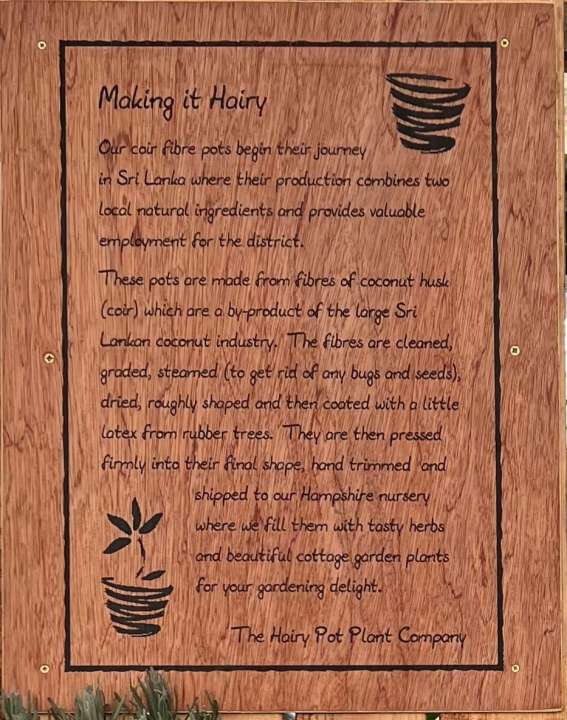 Making it Hairy
Our coir fibre pots begin their journey
in Sri Lanka where their production combines two
local natural ingredients and provides valuable
employment for the district.
These pots are made from fibres of coconut husk
(coir) which are a by-product of the large Sri
Lankan coconut industry. The fibres are cleaned,
graded, steamed (to get rid of any bugs and seeds),
dried, roughly shaped and then coated with a little
latex from rubber trees. They are then pressed
firmly into their final shape, hand trimmed and
shipped to our Hampshire nursery
where we fill them with tasty herbs
and beautiful cottage garden plants
for your gardening delight.
The Hairy Pot Plant Company